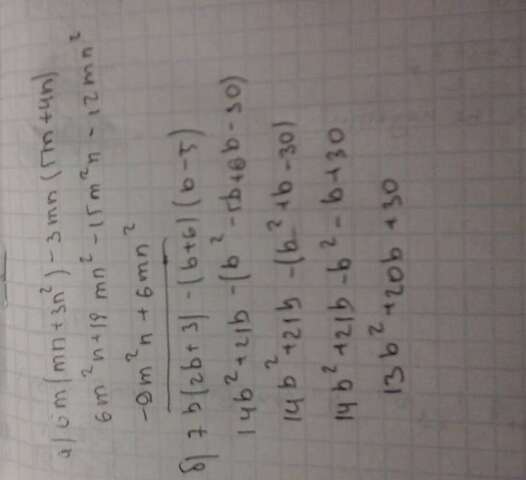 а) 6m(mn+3n²)-3mn(5m+4n)
6m²n+19mn²-15m²n-12mn²
-9m²n+6mn²
б) 7b(2b+3)-(b+6)(b-5)
14b²+21b-(b²-5b+6b-30)
14b²+21b-(b²+b-30)
14b²+21b-b²-b+30
13b²+20b+30